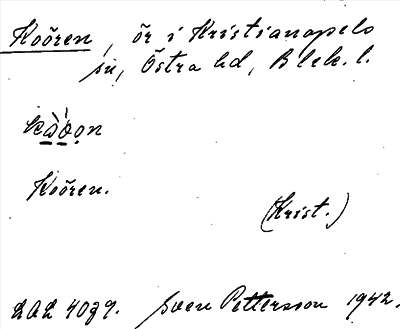 Koören, ör i Kristianopels
sn, Östra hd, Blek. l.
Koören.
(Krist.)
Sven Pettersson 1942.